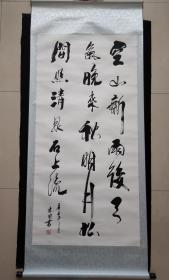 空山新雨後天
氣晚來秋明月松
間照清泉石上流